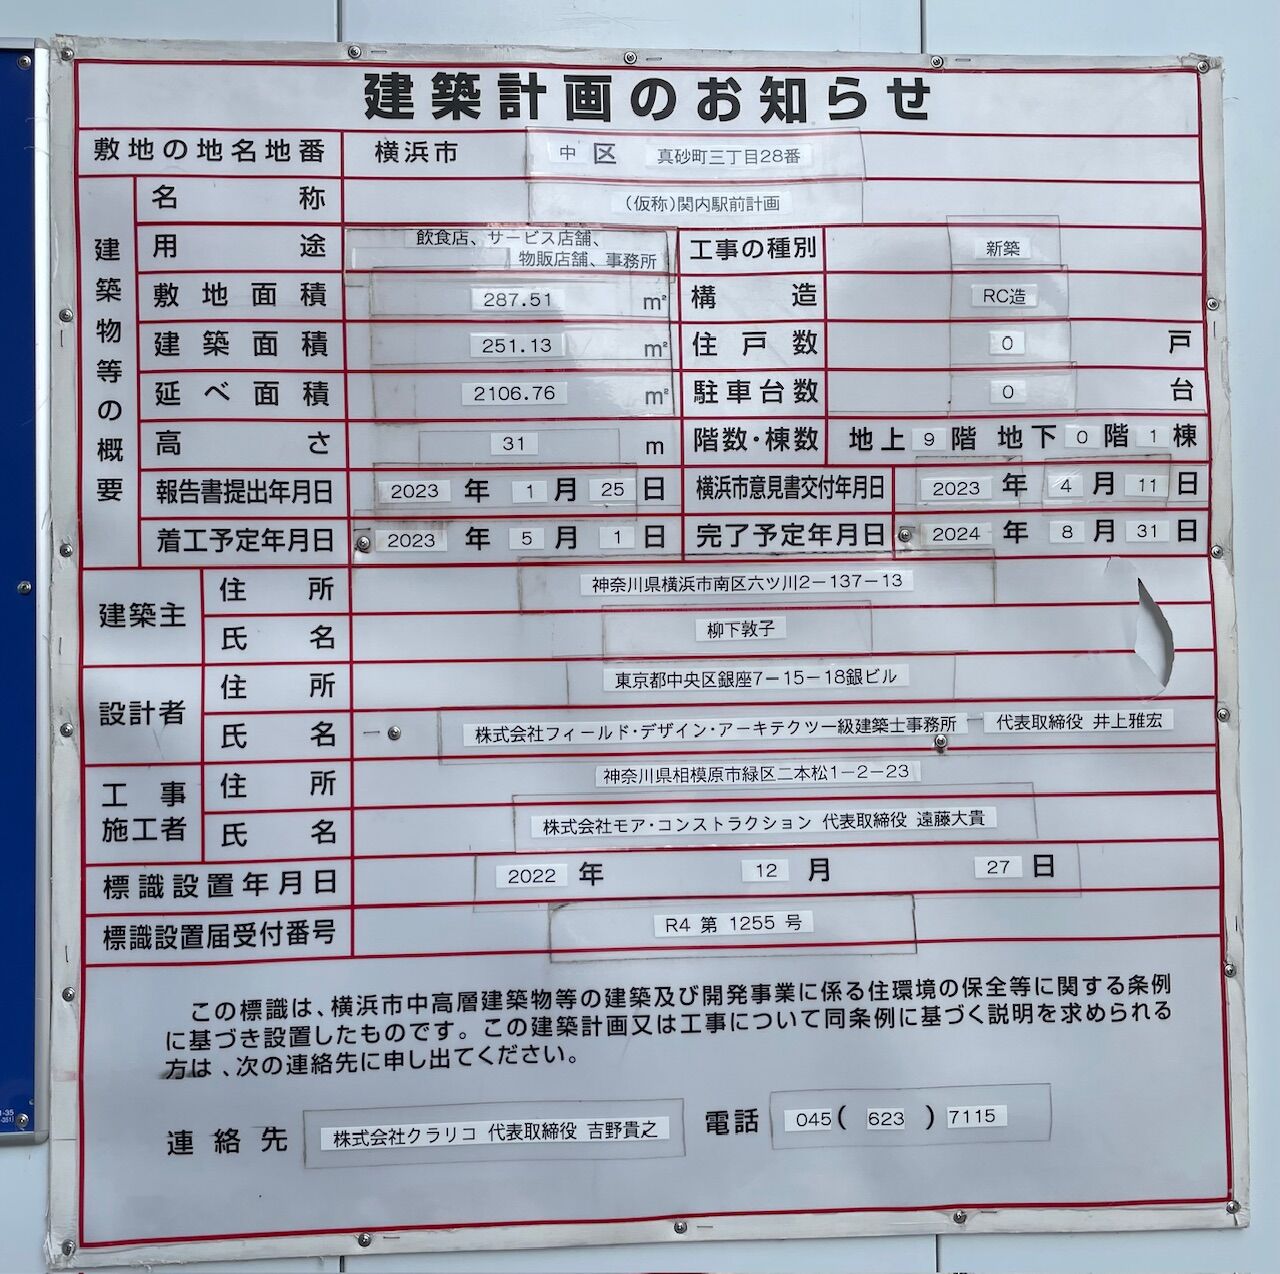 建築計画のお知らせ
敷地の地名地番 横浜市 中 区 真砂町三丁目28番
建築物等の概要
名称 (仮称)関内駅前計画
用途 飲食店、サービス店舗、
物販店舗、事務所
工事の種別 新築
敷地面積 287.51 m² 構造 RC造
建築面積 251.13 m² 住戸数 0 戸
延べ面積 2106.76 m² 駐車台数 0 台
高さ 31 m 階数・棟数 地上 9 階 地下 0 階 1 棟
報告書提出年月日 2023 年 1 月 25 日 横浜市意見書交付年月日 2023 年 4 月 11 日
着工予定年月日 2023 年 5 月 1 日 完了予定年月日 2024 年 8 月 31 日
建築主 住所 神奈川県横浜市南区六ツ川2−137−13
氏名 柳下敦子
設計者 住所 東京都中央区銀座7−15−18銀ビル
氏名 株式会社フィールド・デザイン・アーキテクツ一級建築士事務所 代表取締役 井上雅宏
工事施工者 住所 神奈川県相模原市緑区二本松1−2−23
氏名 株式会社モア・コンストラクション 代表取締役 遠藤大貴
標識設置年月日 2022 年 12 月 27 日
標識設置届受付番号 R4 第 1255 号
この標識は、横浜市中高層建築物等の建築及び開発事業に係る住環境の保全等に関する条例
に基づき設置したものです。この建築計画又は工事について同条例に基づく説明を求められる
方は、次の連絡先に申し出てください。
連絡先 株式会社クラリコ 代表取締役 吉野貴之 電話 045( 623 )7115